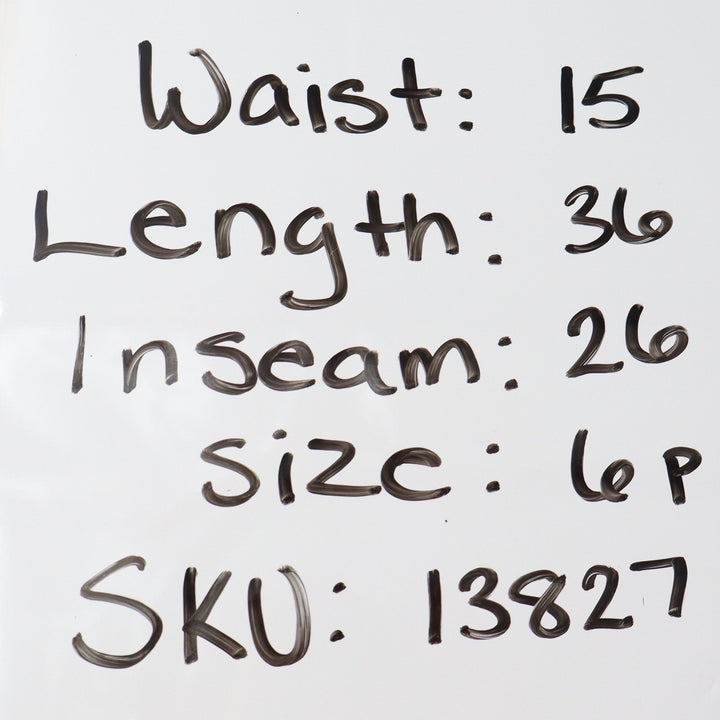 Waist: 15
Length: 36
Inseam: 26
Size: 6P
SKU: 13827